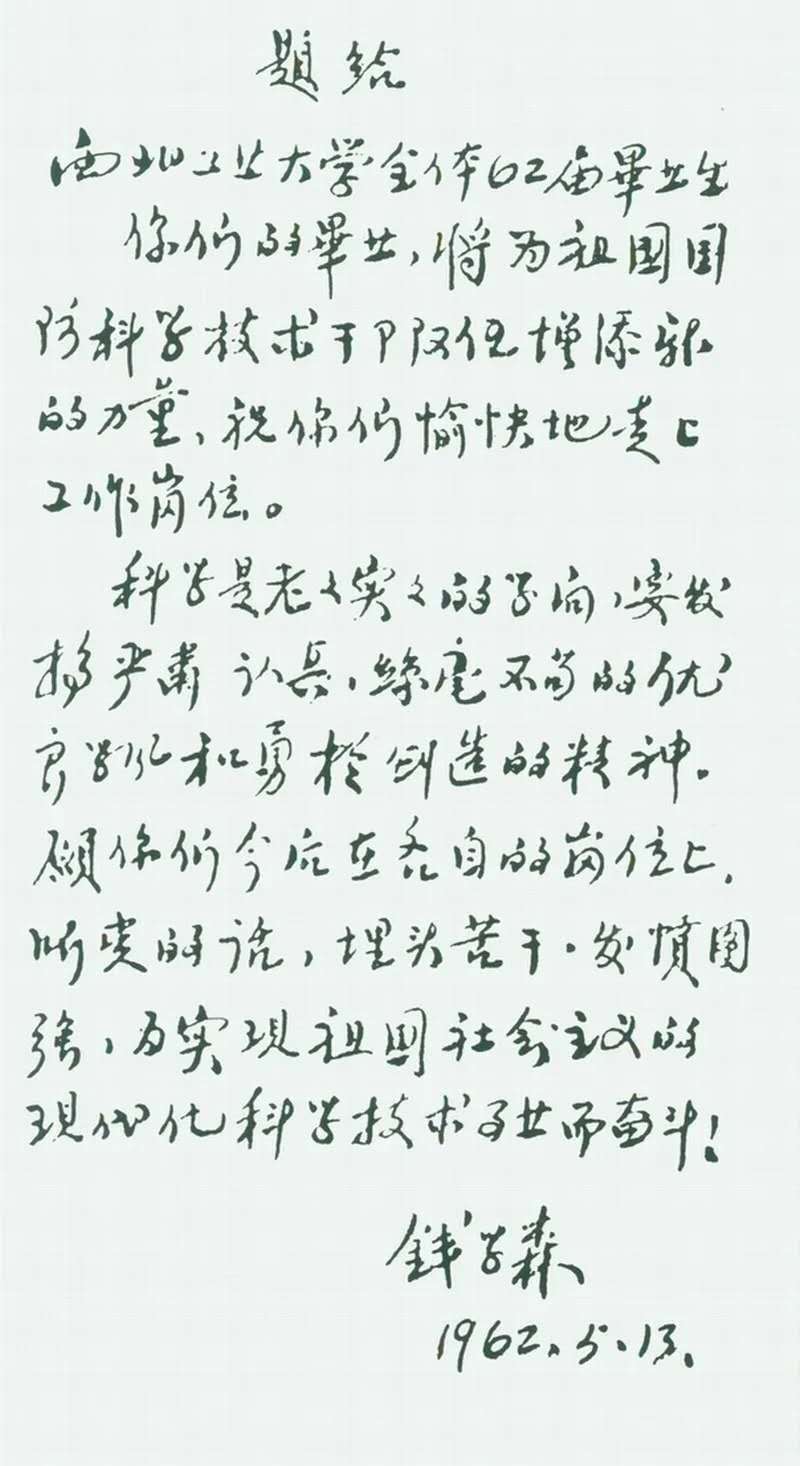 题给
西北工业大学全体62届畢业生
你们的畢业,将为祖国国
防科学技术干部队伍增添新
的力量,祝你们愉快地走上
工作岗位。
科学是老々实々的学问,要发
扬严肃认真,絲毫不苟的优
良学风和勇於创造的精神。
願你们今后在各自的岗位上,
听党的话,埋头苦干,发愤图
強,为实现祖国社会主义的
现代化科学技术事业而奋斗!
钱学森
1962.5.13.